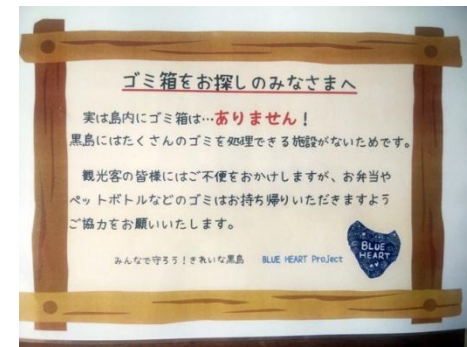 ゴミ箱をお探しのみなさまへ
実は島内にゴミ箱は…ありません!
黒島にはたくさんのゴミを処理できる施設がないためです。
観光客の皆様にはご不便をおかけしますが、お弁当や
ペットボトルなどのゴミはお持ち帰りいただきますよう
ご協力をお願いいたします。
みんなで守ろう!きれいな黒島 BLUE HEART Project
BLUE
HEART